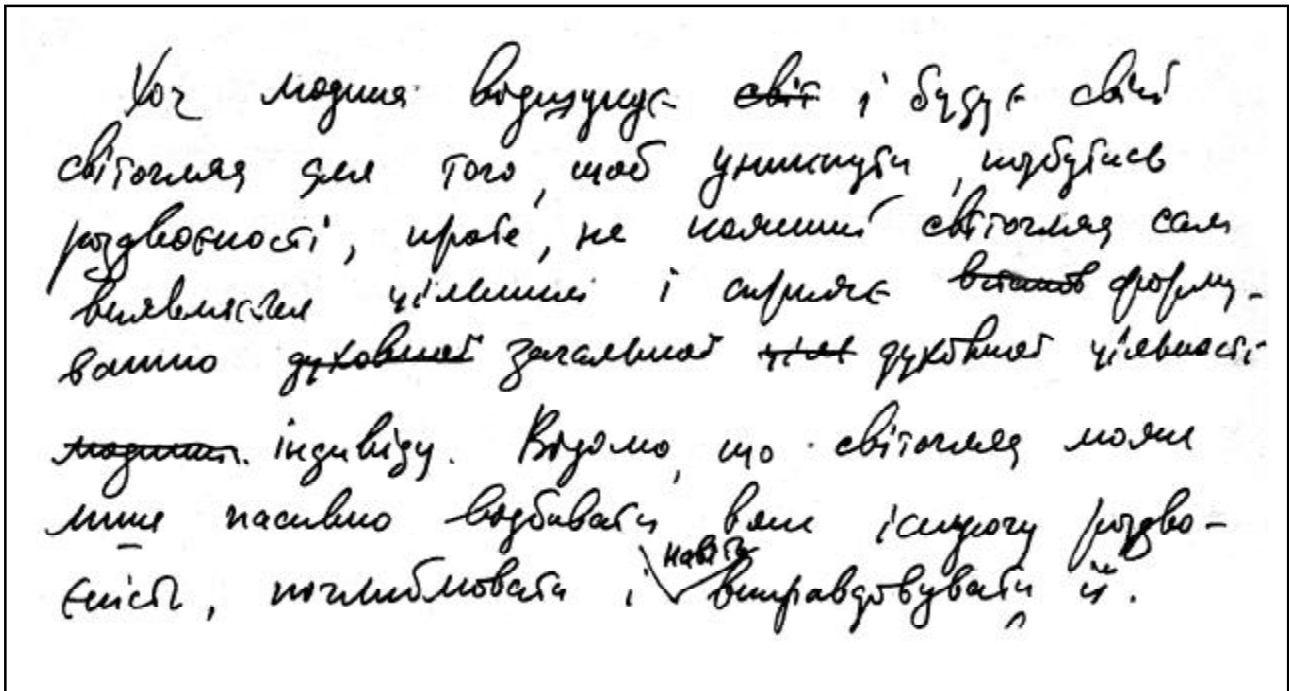 Хоч людина відшукує ~~світ~~ і будує свій
світогляд для того, щоб уникнути, позбутись
роздвоєності, проте, не кожний світогляд сам
виявляється цільним і сприяє форму-
ванню ~~духовної~~ загальної ~~ціл~~ духовної цільності
~~людини~~ індивіду. Відомо, що світогляд може
лише пасивно відбивати вже існуючу роздво-
єність, поглиблювати і навіть виправдовувати її.